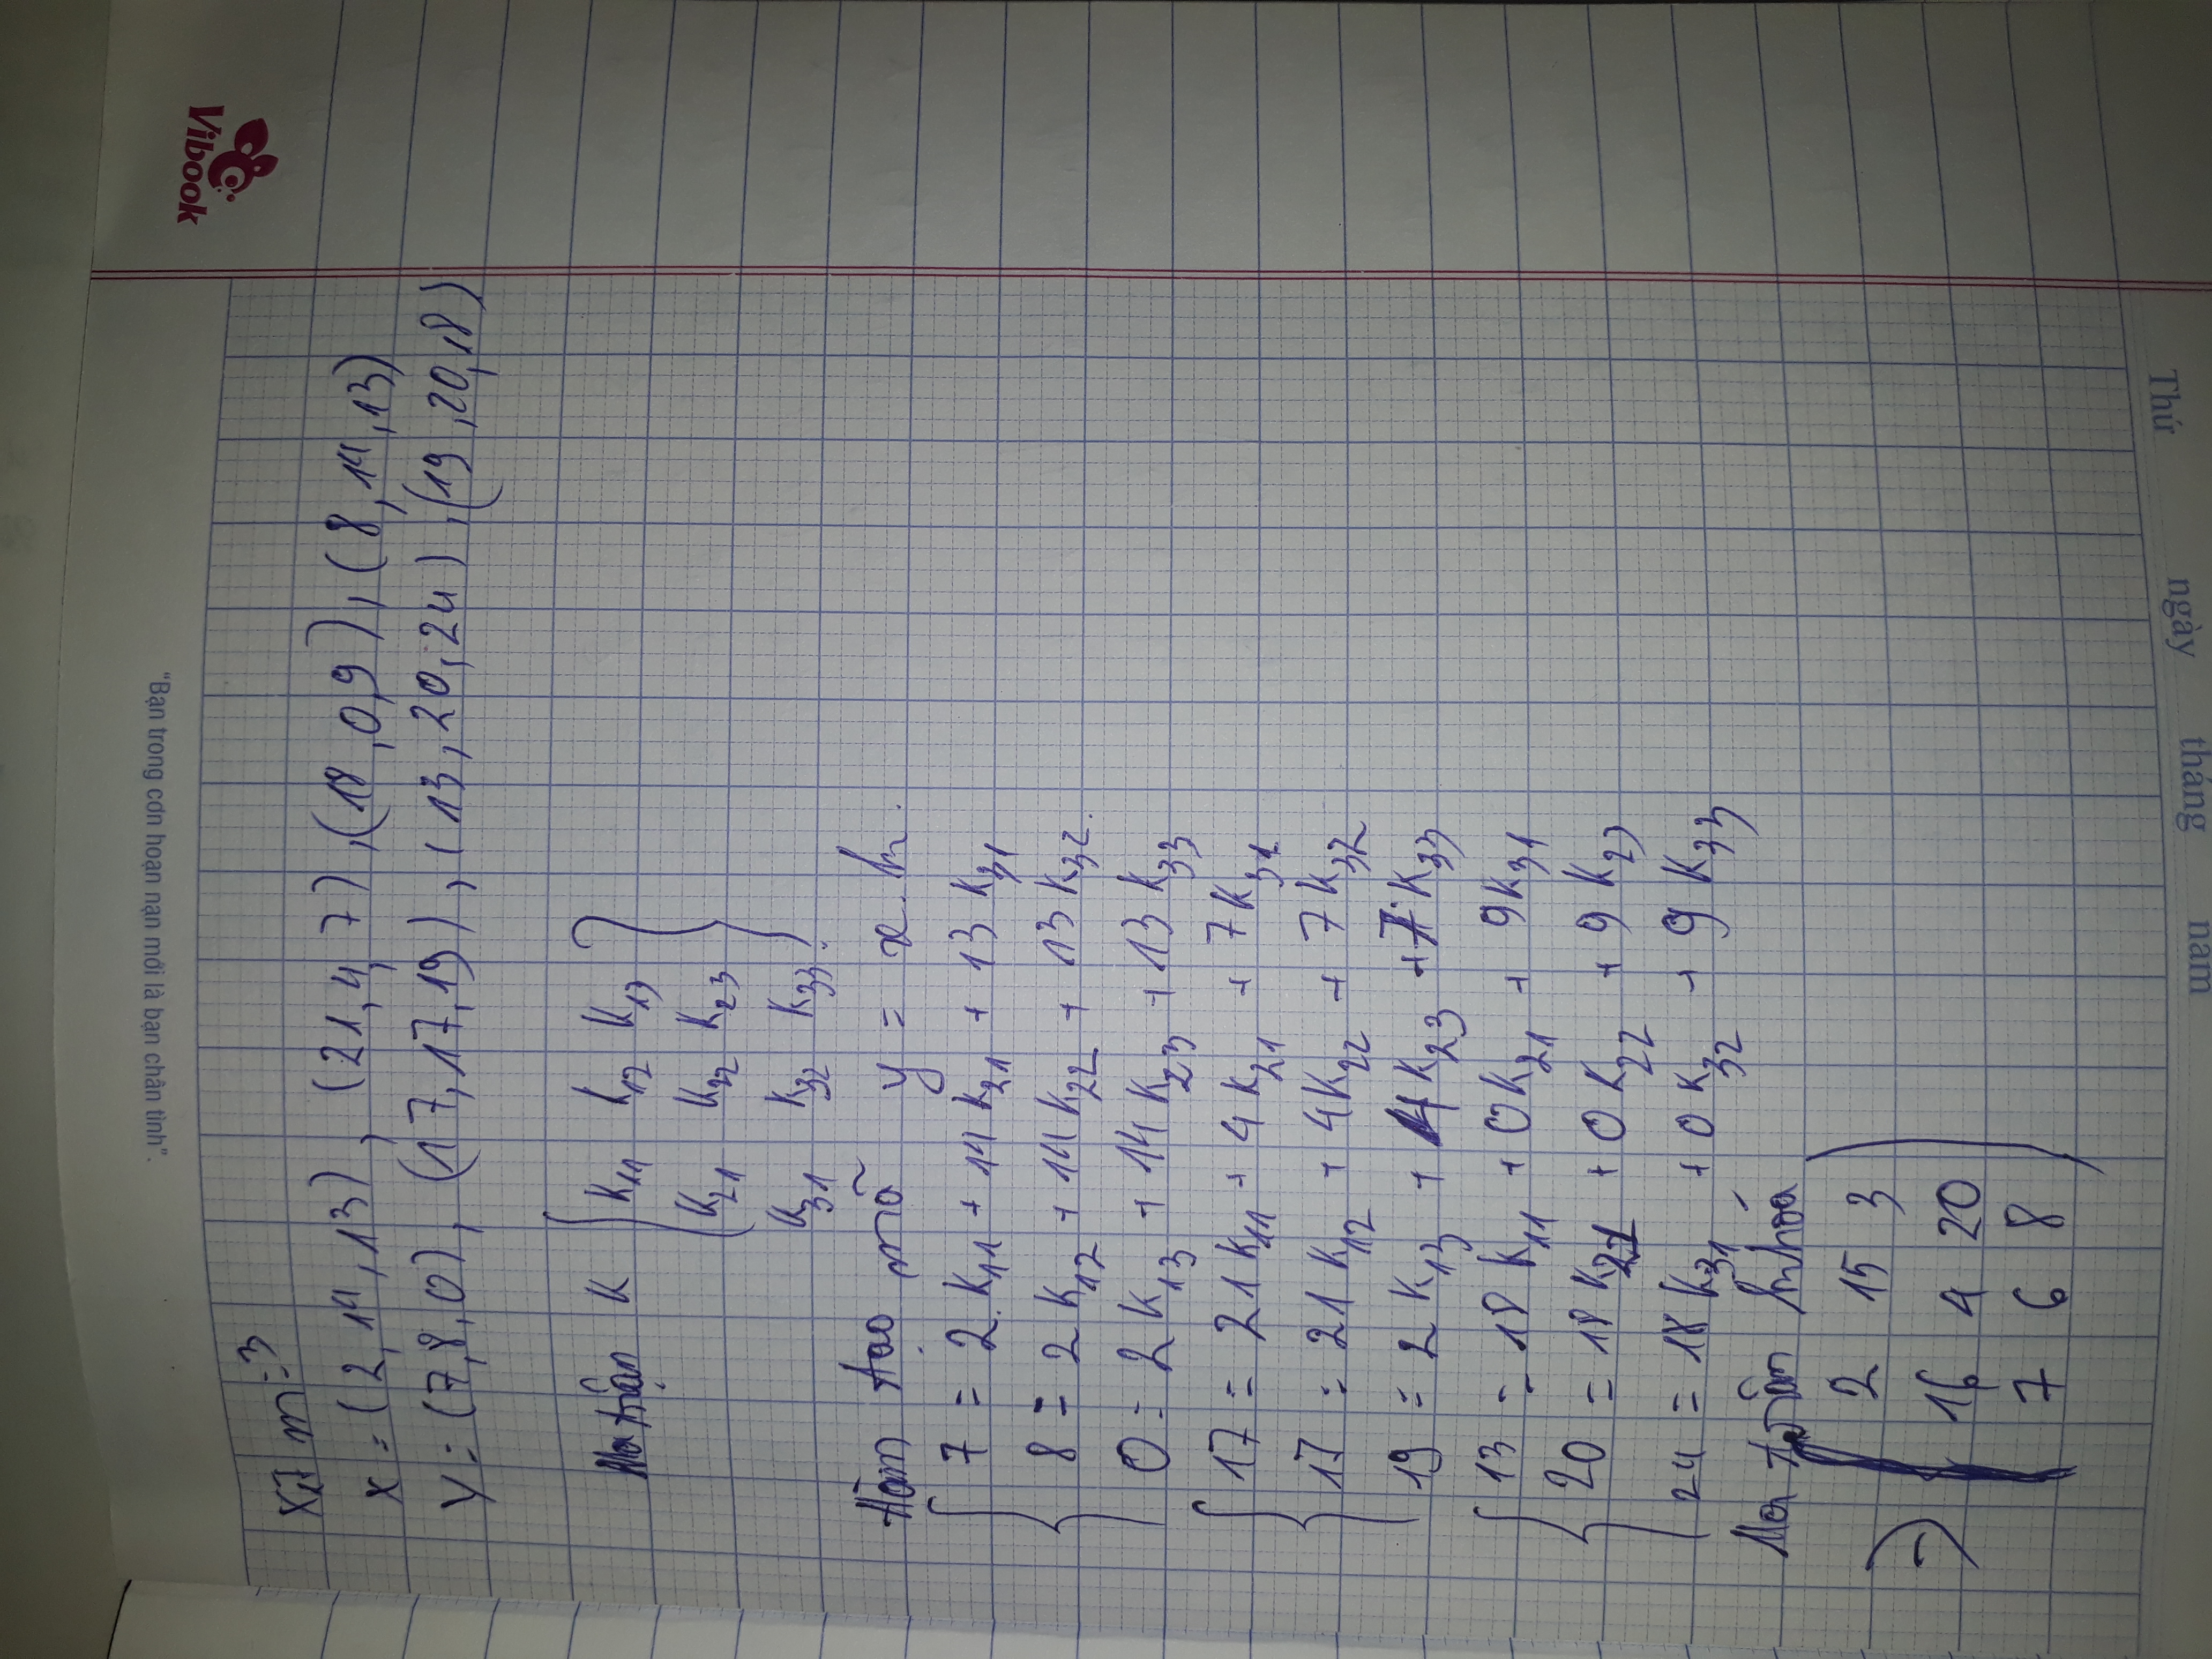 "Bạn trong cơn hoạn nạn mới là bạn chân tình".
Vibook
m=3
x = (2,14,13), (21,4,7), (18,0,9), (8,14,13)
y = (7,8,0), (17,17,19), (13,20,24), (19,20,18)
Ma trận K K11 K12 K13
K21 K22 K23
K31 K32 K33
Hàm tạo mã y = x.k.
7 = 2.K11 + 14K21 + 13K31
8 = 2K12 + 14K22 + 13K32.
0 = 2K13 + 14K23 + 13K33
17 = 21K11 + 4K21 + 7K31
17 = 21K12 + 4K22 + 7K32
19 = 2K13 + 4K23 + 7K33
13 = 18K11 + 0K21 + 9K31
20 = 18K21 + 0K22 + 9K23
24 = 18K31 + 0K32 + 9K33
Ma trận khoá
=> 2 15 3
16 4 20
7 6 8
Thứ ngày tháng năm